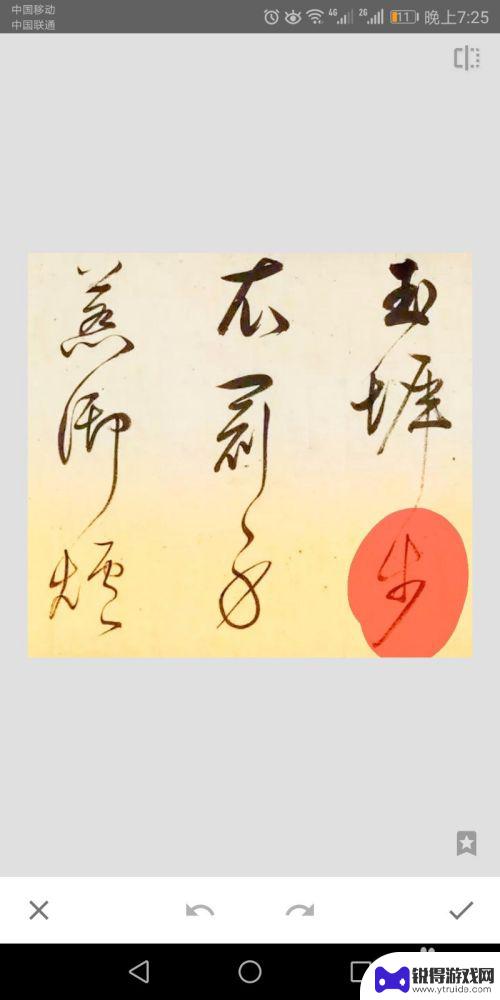 中国移动
中国联通
4G 2G 11 晚上7:25
玉墀步
衣冠身
惹御爐
锐得游戏网
www.ytruida.com